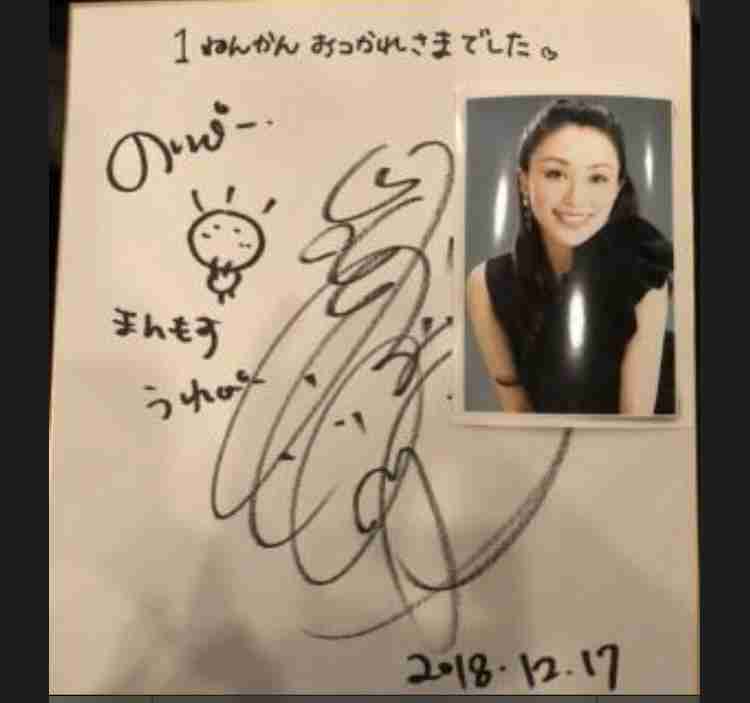 1ねんかん おつかれさまでした
のりピー
まんもす
うれぴー
2018.12.17